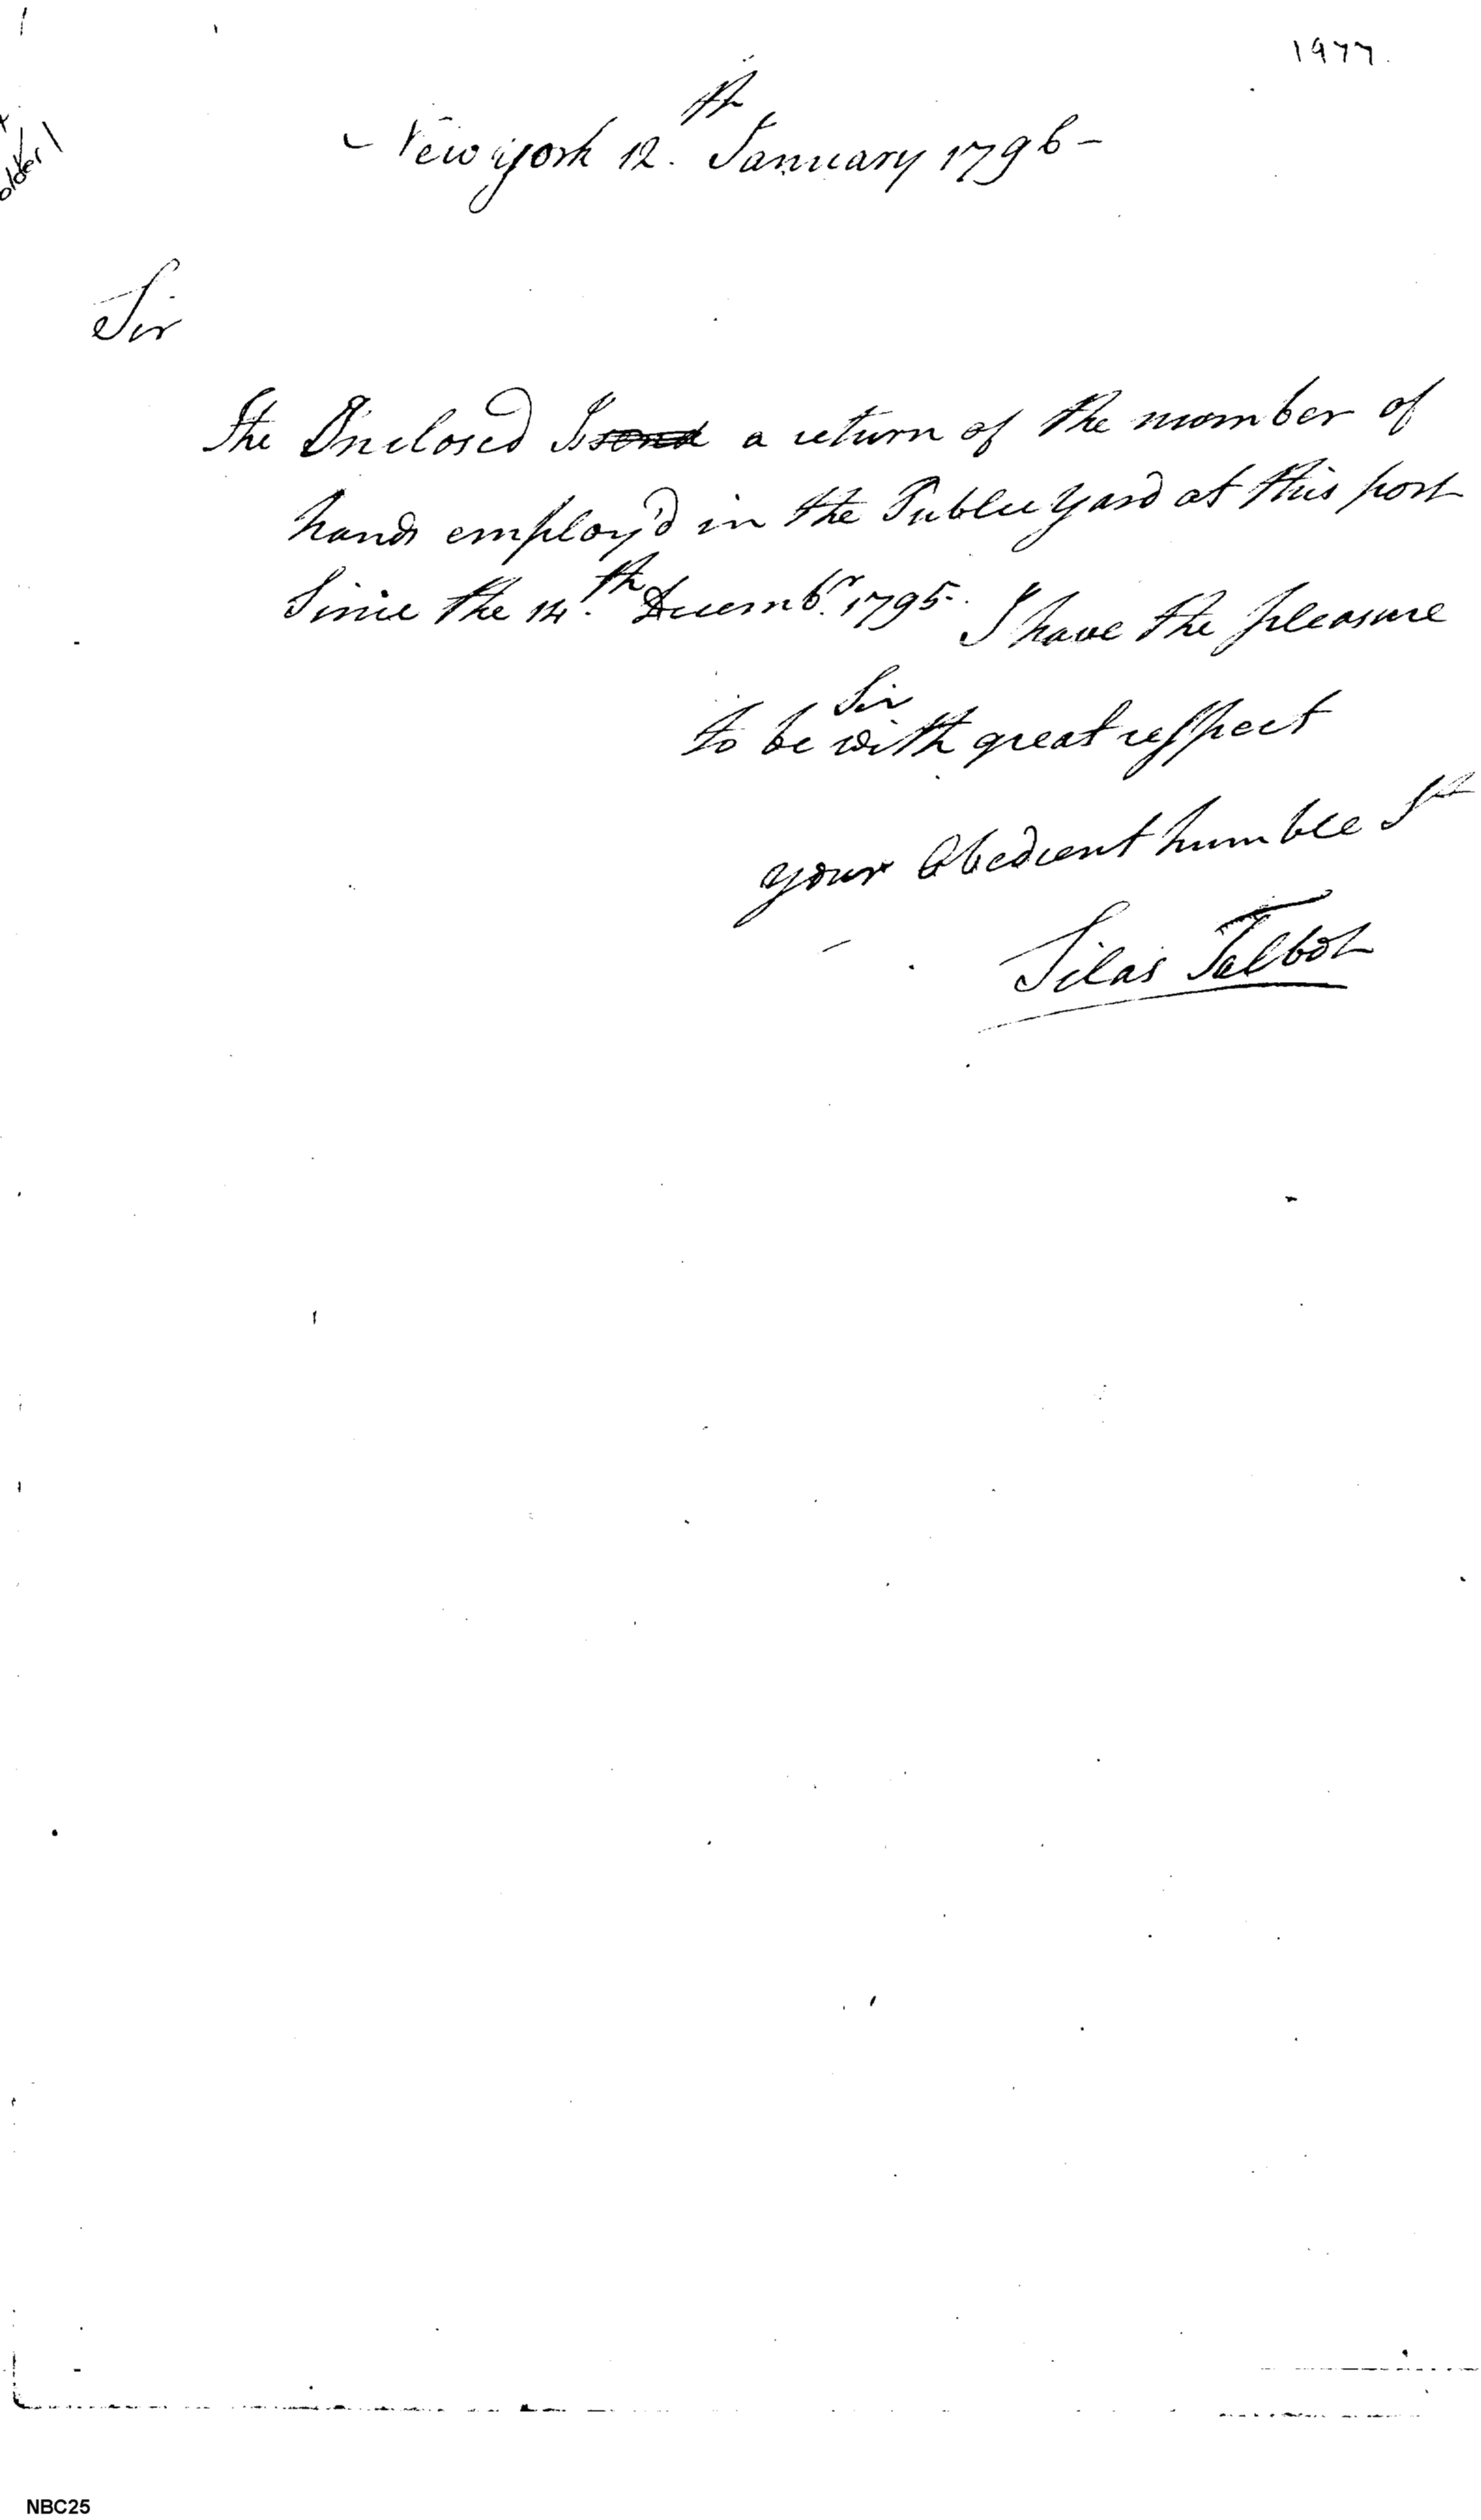 1977.
New york 12.th January 1796-
Sir
the Inclosed Is send a return of the number of
hands employ'd in the Public yard at this port
Since the 14.th Decemb.r 1795. I have the pleasure
to be Sir with great respect
your Obedient humble St
Silas Talbot
NBC25